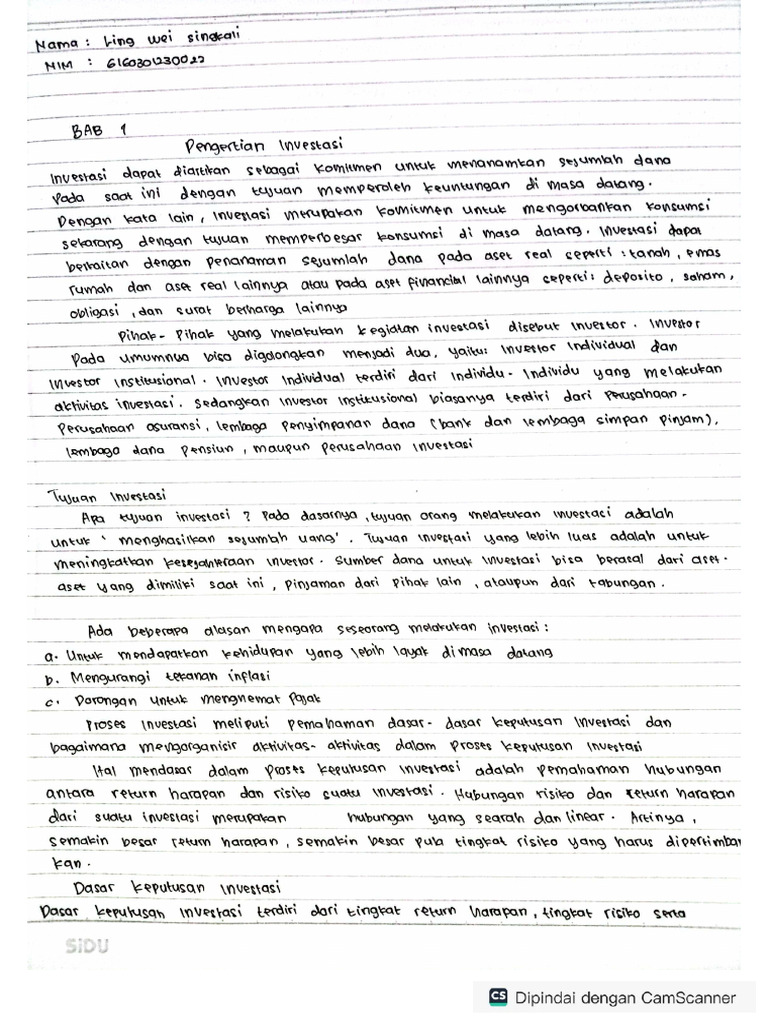 Nama : Ling wei singkali
NIM : 6160301230022
BAB 1
Pengertian Investasi
Investasi dapat diartikan sebagai komitmen untuk menanamkan sejumlah dana
pada saat ini dengan tujuan memperoleh keuntungan di masa datang.
Dengan kata lain, investasi merupakan komitmen untuk mengorbankan konsumsi
sekarang dengan tujuan memperbesar konsumsi di masa datang. Investasi dapat
berkaitan dengan penanaman sejumlah dana pada aset real seperti : tanah, emas
rumah dan aset real lainnya atau pada aset financial lainnya seperti : deposito, saham,
obligasi, dan surat berharga lainnya
Pihak - Pihak yang melakukan kegiatan investasi disebut Investor. Investor
Pada umumnya bisa digolongkan menjadi dua, yaitu: Investor Individual dan
Investor Institusional. Investor Individual terdiri dari Individu - Individu yang melakukan
aktivitas investasi. Sedangkan Investor Institusional biasanya terdiri dari Perusahaan -
Perusahaan asuransi, lembaga Penyimpanan dana (bank dan lembaga simpan pinjam),
lembaga dana pensiun, maupun perusahaan Investasi
Tujuan Investasi
Apa tujuan investasi ? Pada dasarnya, tujuan orang melakukan investasi adalah
untuk ' menghasilkan sejumlah uang'. Tujuan investasi yang lebih luas adalah untuk
meningkatkan kesejahteraan investor. Sumber dana untuk investasi bisa berasal dari aset-
aset yang dimiliki saat ini, pinjaman dari pihak lain, ataupun dari tabungan.
Ada beberapa alasan mengapa seseorang melakukan investasi :
a. Untuk mendapatkan kehidupan yang lebih layak di masa datang
b. Mengurangi tekanan inflasi
c. Dorongan untuk menghemat Pajak
Proses Investasi meliputi pemahaman dasar - dasar keputusan Investasi dan
bagaimana mengorganisir aktivitas - aktivitas dalam Proses keputusan Investasi
Hal mendasar dalam Proses keputusan investasi adalah pemahaman hubungan
antara return harapan dan risiko suatu Investasi. Hubungan risiko dan return harapan
dari suatu investasi merupakan hubungan yang searah dan linear. Artinya,
semakin besar return harapan, semakin besar pula tingkat risiko yang harus dipertimban
kan.
Dasar keputusan Investasi
Dasar keputusan Investasi terdiri dari tingkat return harapan, tingkat risiko serta
SiDU
CS Dipindai dengan CamScanner